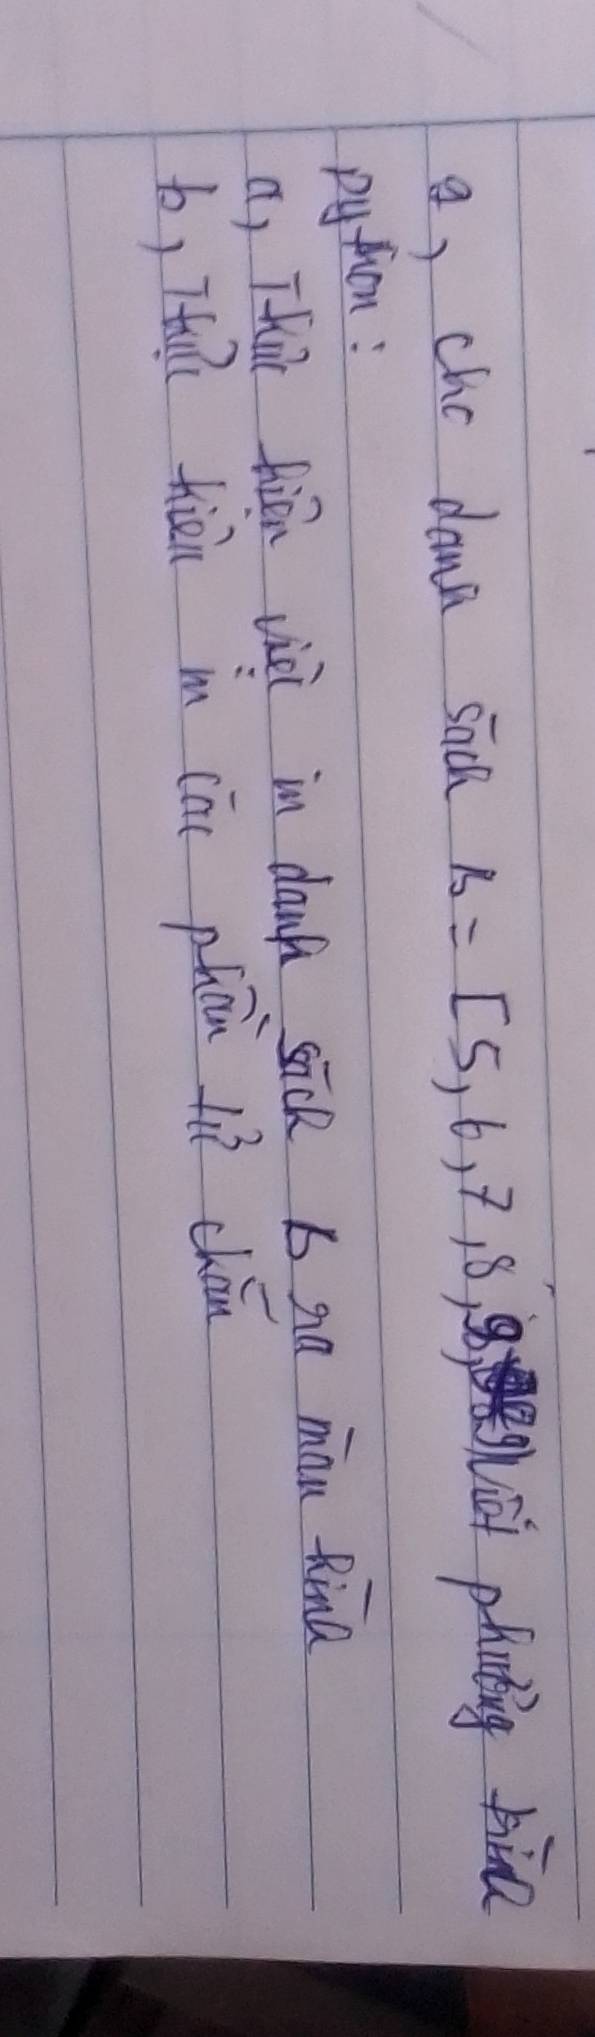 9, cho danh sách B = [5, 6, 7, 8, 9, viết phương trình
python:
a, Thực hiện việc in danh sách B ra màn hình
b, Thực hiện in các phần tử chẵn